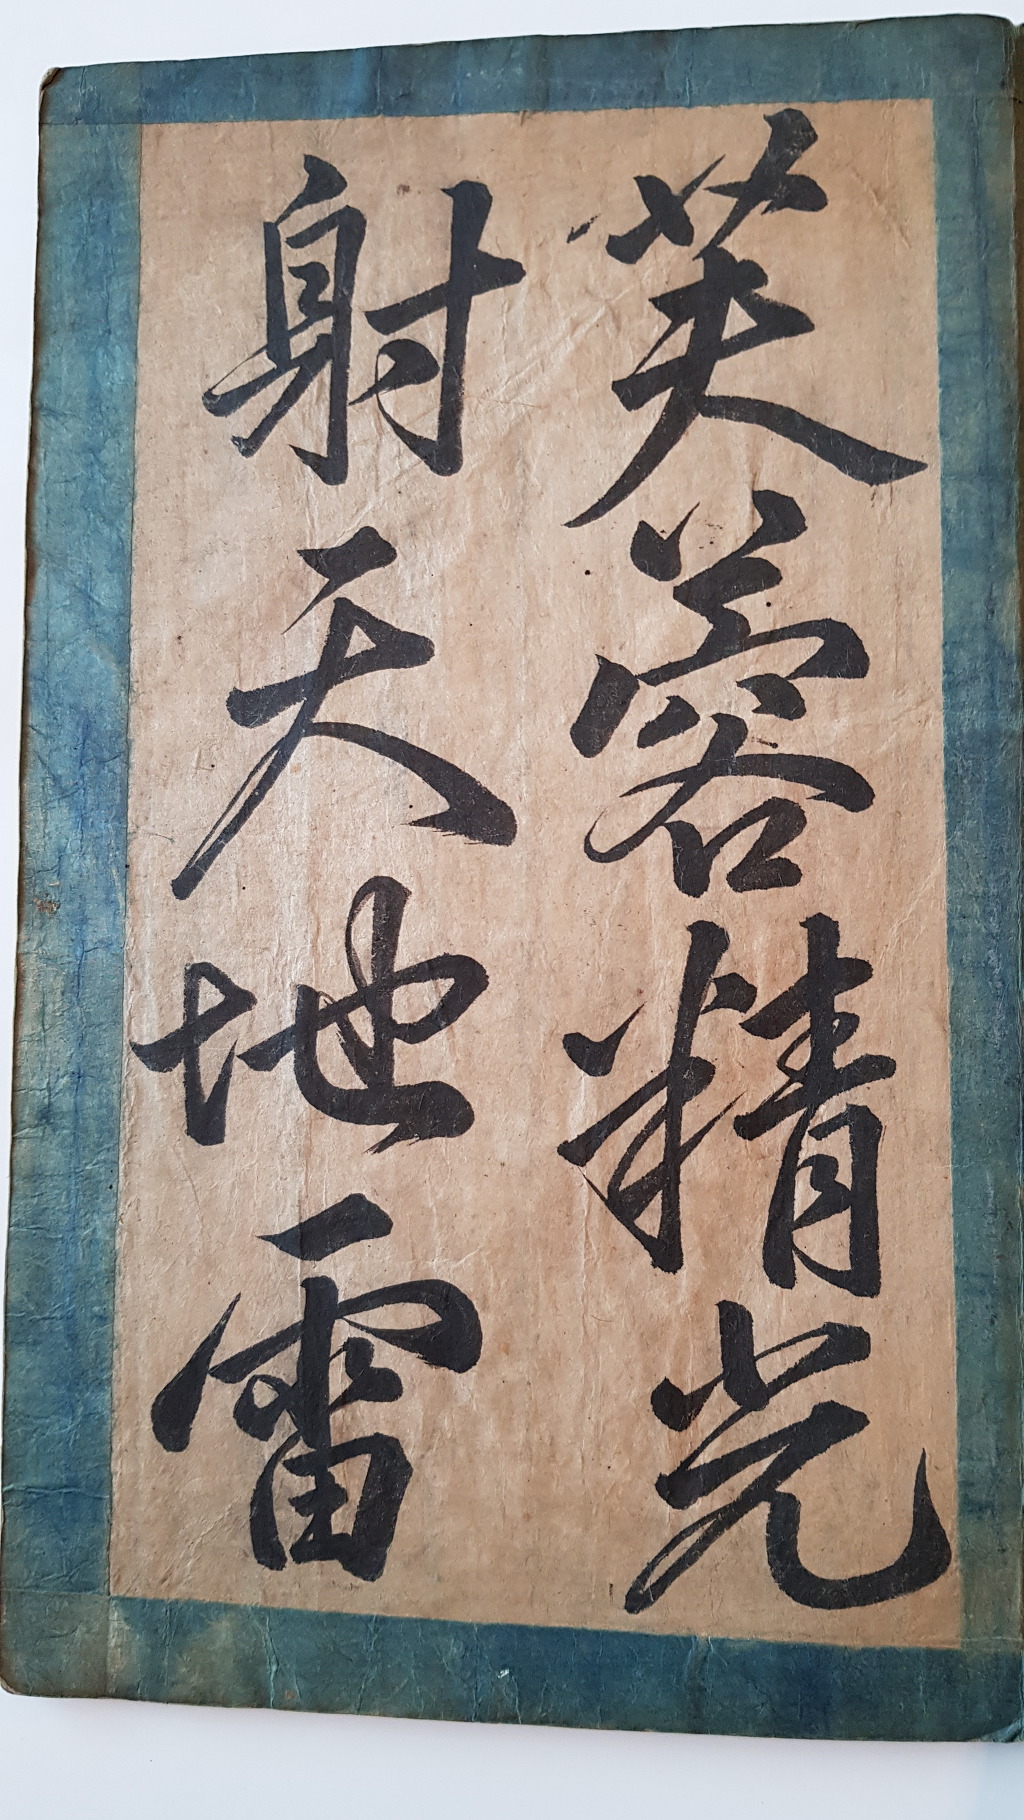 芙蓉精光
射天地雷